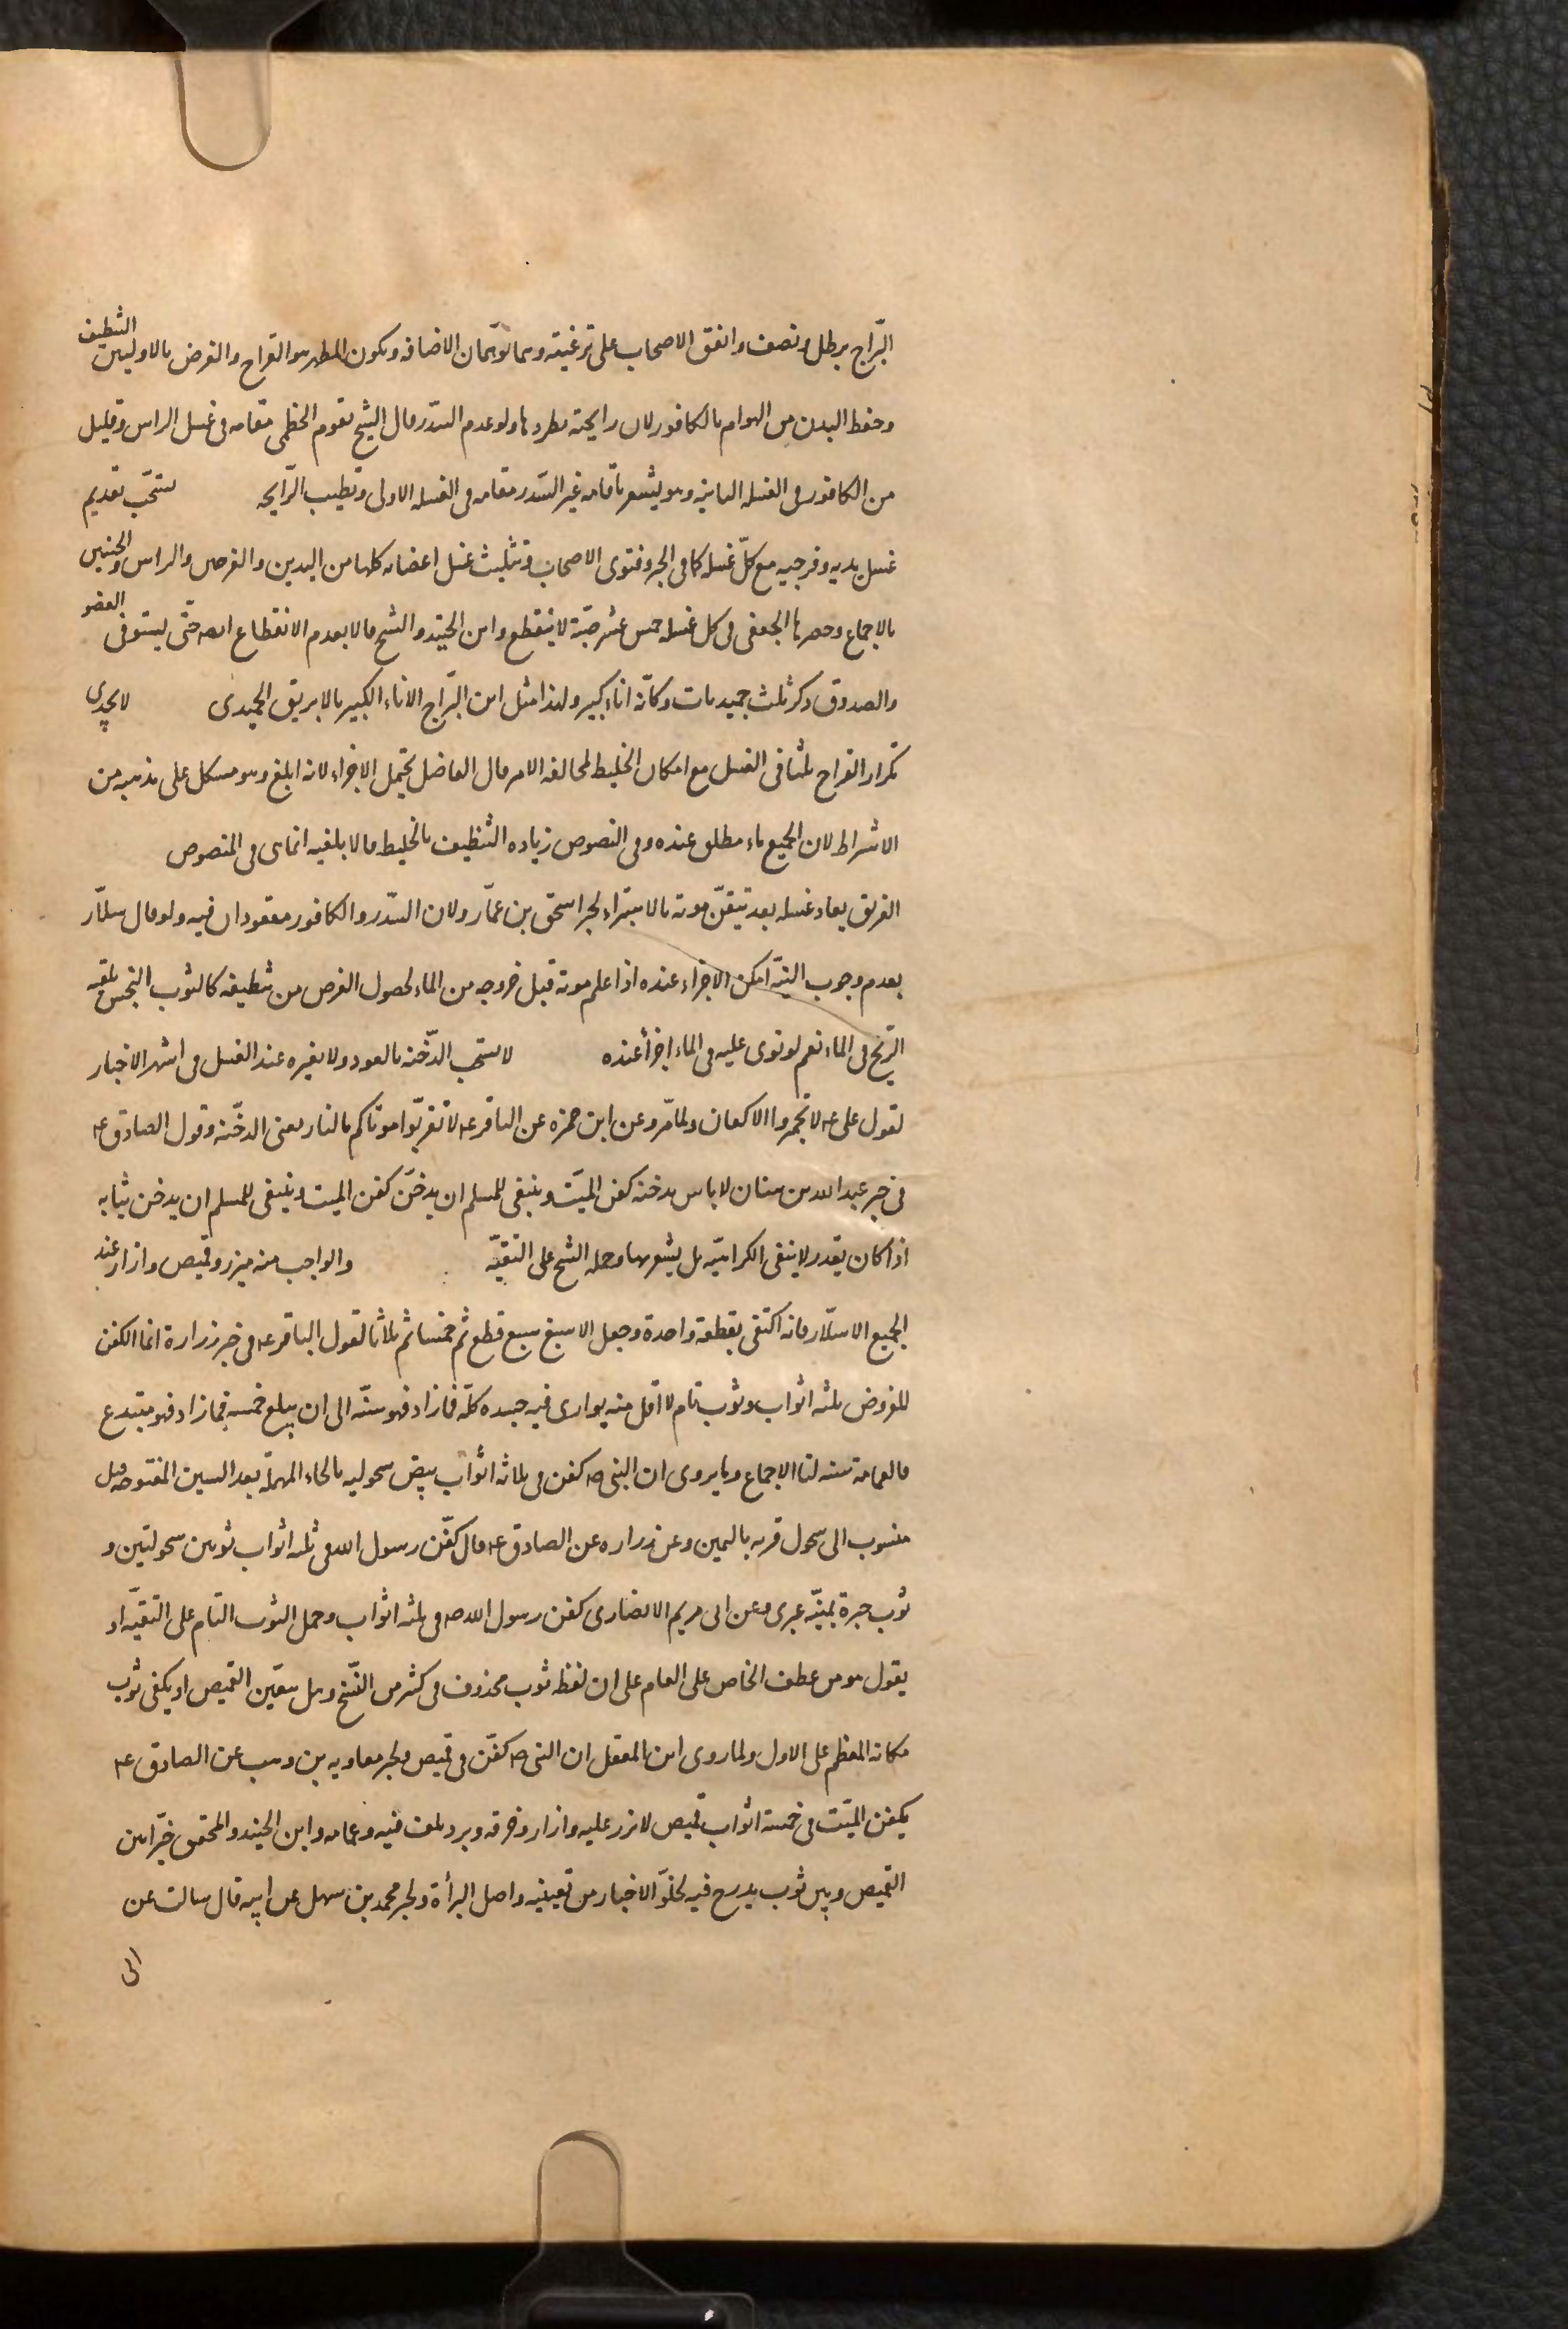 البرّاج برطل ونصف واتفق الاصحاب على ترغيته وهما توهمان الاضافه ويكون المطهر هو القراح والغرض بالاوليين التنظيف
وحفظ البدن من الهوام بالكافور لان رايحته تطردها ولو عدم السّدر قال الشيخ يقوم الخطمى مقامه فى غسل الراس وقليل
من الكافور فى الغسله الثانية وهو يشعر باقامه غير السّدر مقامه فى الغسله الاولى وتطيب الرّايحه يستحّب تقديم
غسل يديه وفرجيه مع كلّ غسله كما فى الخبر وفتوى الاصحاب وتثليث غسل اعضائه كلها من اليدين والفرجين والراس والجنبين
بالاجماع وحصرها الجعفى فى كل غسله خمس عشر صبّة لا ينقطع وابن الجنيد والشيخ قالا بعدم الانقطاع ايضا حتّى يستوفى العضو
والصدوق ذكر ثلث حميديات وكانّه اناء كبير ولهذا مثل ابن البرّاج الاناء الكبير بالابريق الحميدى لا يجدى
تكرار القراح ثلثا فى الغسل مع امكان الخليط لمخالفه الامر قال الفاضل يحتمل الاجزاء لانه ابلغ وهو مشكل على مذهبه من
الاشراط لان الجميع ماء مطلق عنده وفى النصوص زياده التنظيف بالخليط قالا بلغيه انما هى فى المنصوص
الغريق يعاد غسله بعد تيقّن موته بالاستبراء لخبر اسحق بن عمّار ولان السّدر والكافور مفقودان فيه ولو قال سلّار
بعدم وجوب النيّة امكن الاجزاء عنده اذا علم موته قبل خروجه من الماء لحصول الغرض من تنظيفه كالثوب النجس تلقيه
الرّيح فى الماء نعم لو نوى عليه فى الماء اجزأ عنده لا يستحب الدّخنه بالعود ولا بغيره عند الغسل فى اشهر الاخبار
لقول على ع لا تجمروا الاكفان ولما مّر وعن ابن حمزه عن الباقر ع لا تقربّوا موتاكم بالنار يعنى الدخّنه وقول الصادق ع
فى خبر عبد الله بن سنان لا باس بدخنه كفن الميّت وينبغى للمسلم ان يدخّن كفن الميت وينبغى للمسلم ان يدخن ثيابه
اذا كان يقدر لا ينفى الكراهيّه بل يشعر بها وحمله الشيخ على التقيّه والواجب منه ميزر وقميص وازار عند
الجميع الا سلّار فانه اكتفى بقطعة واحدة وجعل الاسبغ سبع قطع ثم خمسا ثم ثلاثا لقول الباقر ع فى خبر زرارة انما الكفن
المفروض ثلثه اثواب وثوب تام لا اقل منه يوارى فيه جسده كلّه فما زاد فهو سنّه الى ان يبلغ خمسه فما زاد فهو مبتدع
والعمامة سنه لنا الاجماع وما يروى ان النبى ص كفن فى ثلاثه اثواب بيض سحوليه بالحاء المهملة بعد السين المفتوحه قيل
منسوب الى سحول قريه باليمن وعن زراره عن الصادق ع قال كفّن رسول الله فى ثلثه اثواب ثوبين سحوليّين و
ثوب حبرة يمنيّه عبرى وعن ابى مريم الانصارى كفن رسول الله ص فى ثلثه اثواب وحمل الثوب التام على التقيّه او
يقول هو من عطف الخاص على العام على ان لفظه ثوب محذوف فى كثير من النّسخ وهل يتعيّن القميص او يكفى ثوب
مكانه المعظم على الاول ولما روى ابن المغفل ان النبى ص كفّن فى قميص ولخبر معاويه بن وهب عن الصادق ع
يكفن الميّت فى خمسة اثواب قميص لا يزر عليه وازار وخرقه وبرد يلف فيه وعمامه وابن الجنيد والمحقق خيّرا بين
القميص وبين ثوب يدرج فيه لخلوّ الاخبار من تعيينه واصل البرأة ولخبر محمد بن سهل عن ابيه قال سالت عن